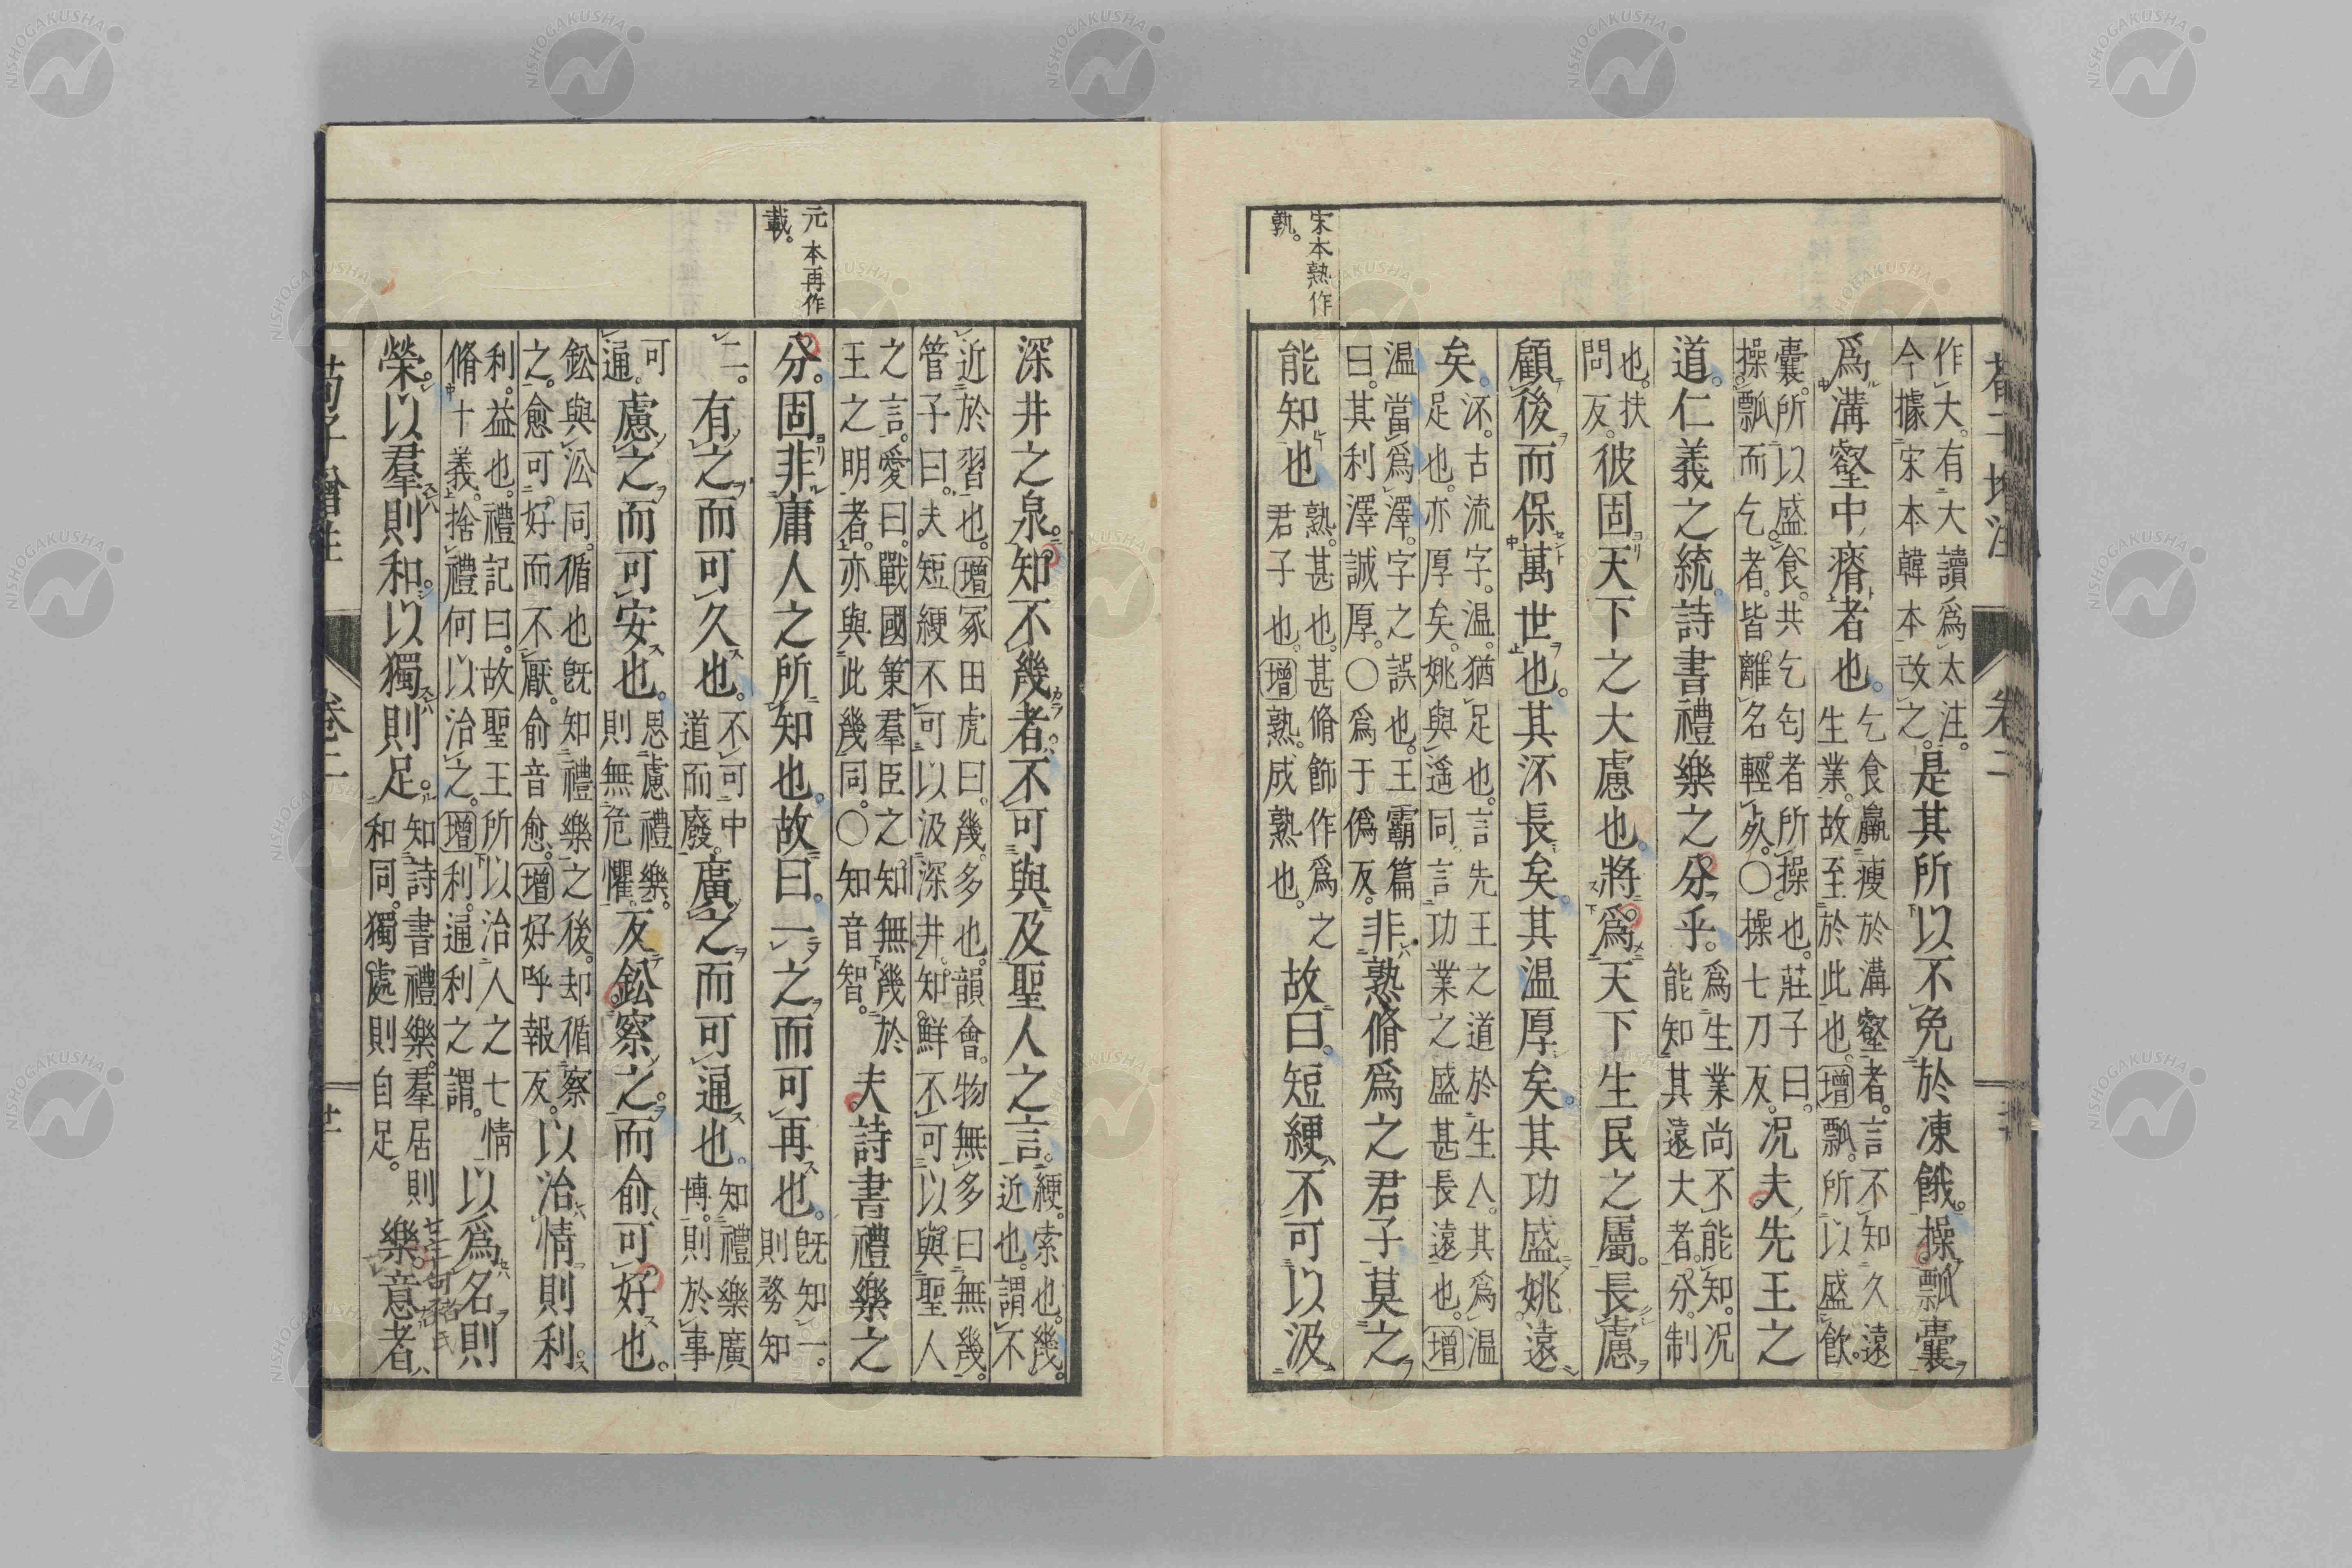 作大有大讀爲太注。
今據宋本韓本改之。是其所以不免於凍餓。操瓢囊
爲溝壑中瘠者也。乞食羸瘦於溝壑者。言不知久遠
生業。故至於此也。增瓢。所以盛飮。
囊。所以盛食。共乞匃者所操也。莊子曰。
操瓢而乞者。皆離名輕死。〇操七刀反。况夫先王之
道。仁義之統。詩書禮樂之分乎。爲生業尚不能知。况
能知其遠大者。分。制
也。扶
問反。彼固天下之大慮也。將爲天下生民之屬。長慮
顧後而保萬世也。其㳅長矣。其温厚矣。其功盛姚遠
矣。㳅。古流字。温。猶足也。言先王之道於生人。其爲温
足也。亦厚矣。姚與遙同。言功業之盛甚長遠也。增
温當爲澤。字之誤也。王霸篇
曰。其利澤誠厚。〇爲于僞反。非熟脩爲之君子。莫之
能知也。熟。甚也。甚脩飾作爲之
君子也。增熟。成熟也。故曰。短綆不可以汲
宋本熟作
孰。
深井之泉。知不幾者。不可與及聖人之言。綆。索也。幾。
近也。謂不
近於習也。增冢田虎曰。幾。多也。韻會。物無多曰無幾。
管子曰。夫短綆不可以汲深井。知鮮不可以與聖人
之言。愛曰。戰國策羣臣之知無幾於
王之明者。亦與此幾同。〇知音智。夫詩書禮樂之
分。固非庸人之所知也。故曰。一之而可再也。旣知一。
則務知
二。有之而可久也。不可中
道而廢。廣之而可通也。知禮樂廣
博。則於事
可
通。慮之而可安也。思慮禮樂。
則無危懼。反鈆察之。而俞可好也。
鈆與沿同。循也旣知禮樂之後。却循察
之。愈可好而不厭。俞音愈。增好呼報反。以治情則利。
利。益也。禮記曰。故聖王所以治人之七情
脩十義。捨禮何以治之。增利。通利之謂。以爲名則
榮。以羣則和。以獨則足。知詩書禮樂。羣居則
和同。獨處則自足。樂意者
元本再作
載。